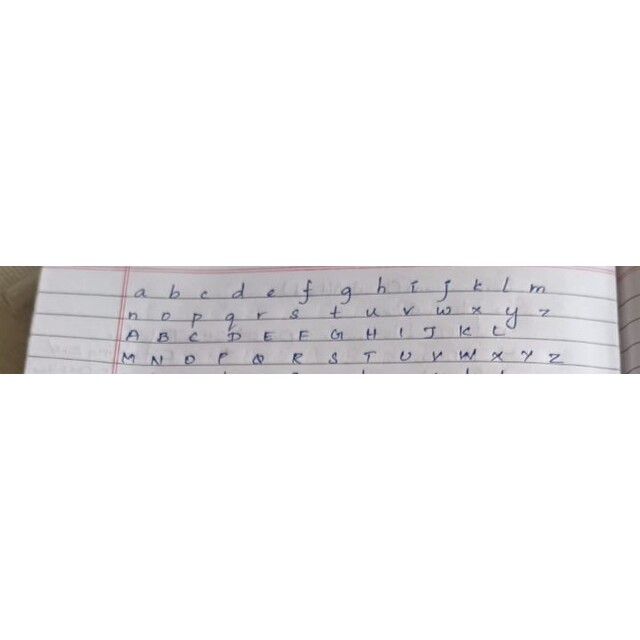 a b c d e f g h i j k l m
n o p q r s t u v w x y z
A B C D E F G H I J K L
M N O P Q R S T U V W X Y Z